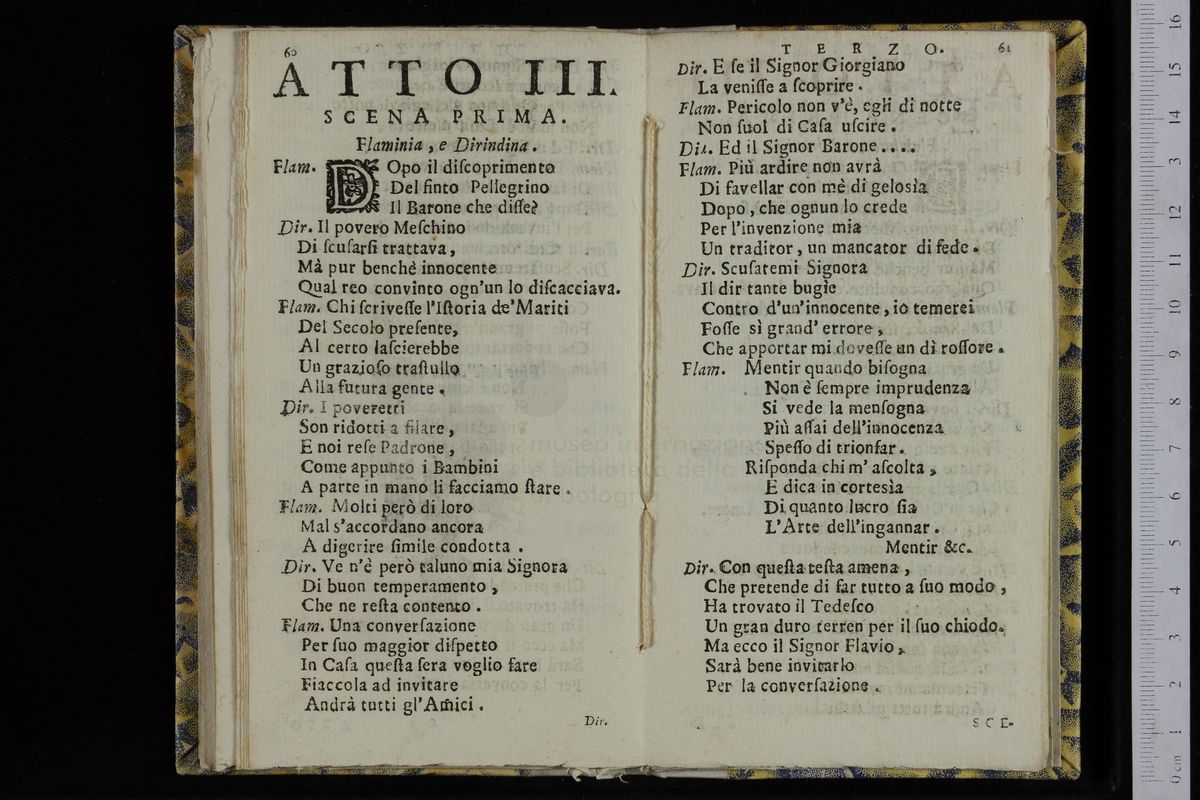 60
ATTO III.
SCENA PRIMA.
Flaminia, e Dirindina.
Flam. DOpo il diſcoprimento
Del finto Pellegrino
Il Barone che diſſe?
Dir. Il povero Meſchino
Di ſcuſarſi trattava,
Mà pur benchè innocente
Qual reo convinto ogn'un lo diſcacciava.
Flam. Chi ſcriveſſe l'Iſtoria de' Mariti
Del Secolo preſente,
Al certo laſcierebbe
Un grazioſo traſtullo
Alla futura gente.
Dir. I poveretti
Son ridotti a filare,
E noi reſe Padrone,
Come appunto i Bambini
A parte in mano li facciamo ſtare.
Flam. Molti però di loro
Mal s'accordano ancora
A digerire ſimile condotta.
Dir. Ve n'è però taluno mia Signora
Di buon temperamento,
Che ne reſta contento.
Flam. Una converſazione
Per ſuo maggior diſpetto
In Caſa queſta ſera voglio fare
Fiaccola ad invitare
Andrà tutti gl'Amici.
Dir.
TERZO. 61
Dir. E ſe il Signor Giorgiano
La veniſſe a ſcoprire.
Flam. Pericolo non v'è, egli di notte
Non ſuol di Caſa uſcire.
Dir. Ed il Signor Barone....
Flam. Più ardire non avrà
Di favellar con mè di gelosìa
Dopo, che ognun lo crede
Per l'invenzione mia
Un traditor, un mancator di fede.
Dir. Scuſatemi Signora
Il dir tante bugìe
Contro d'un'innocente, io temerei
Foſſe sì grand' errore,
Che apportar mi doveſſe un dì roſſore.
Flam. Mentir quando biſogna
Non è ſempre imprudenza
Si vede la menſogna
Più aſſai dell'innocenza
Speſſo di trionfar.
Riſponda chi m' aſcolta,
E dica in cortesìa
Di quanto lucro ſia
L'Arte dell'ingannar.
Mentir &c.
Dir. Con queſta teſta amena,
Che pretende di far tutto a ſuo modo,
Ha trovato il Tedeſco
Un gran duro terren per il ſuo chiodo.
Ma ecco il Signor Flavio,
Sarà bene invitarlo
Per la converſazione.
SCE-